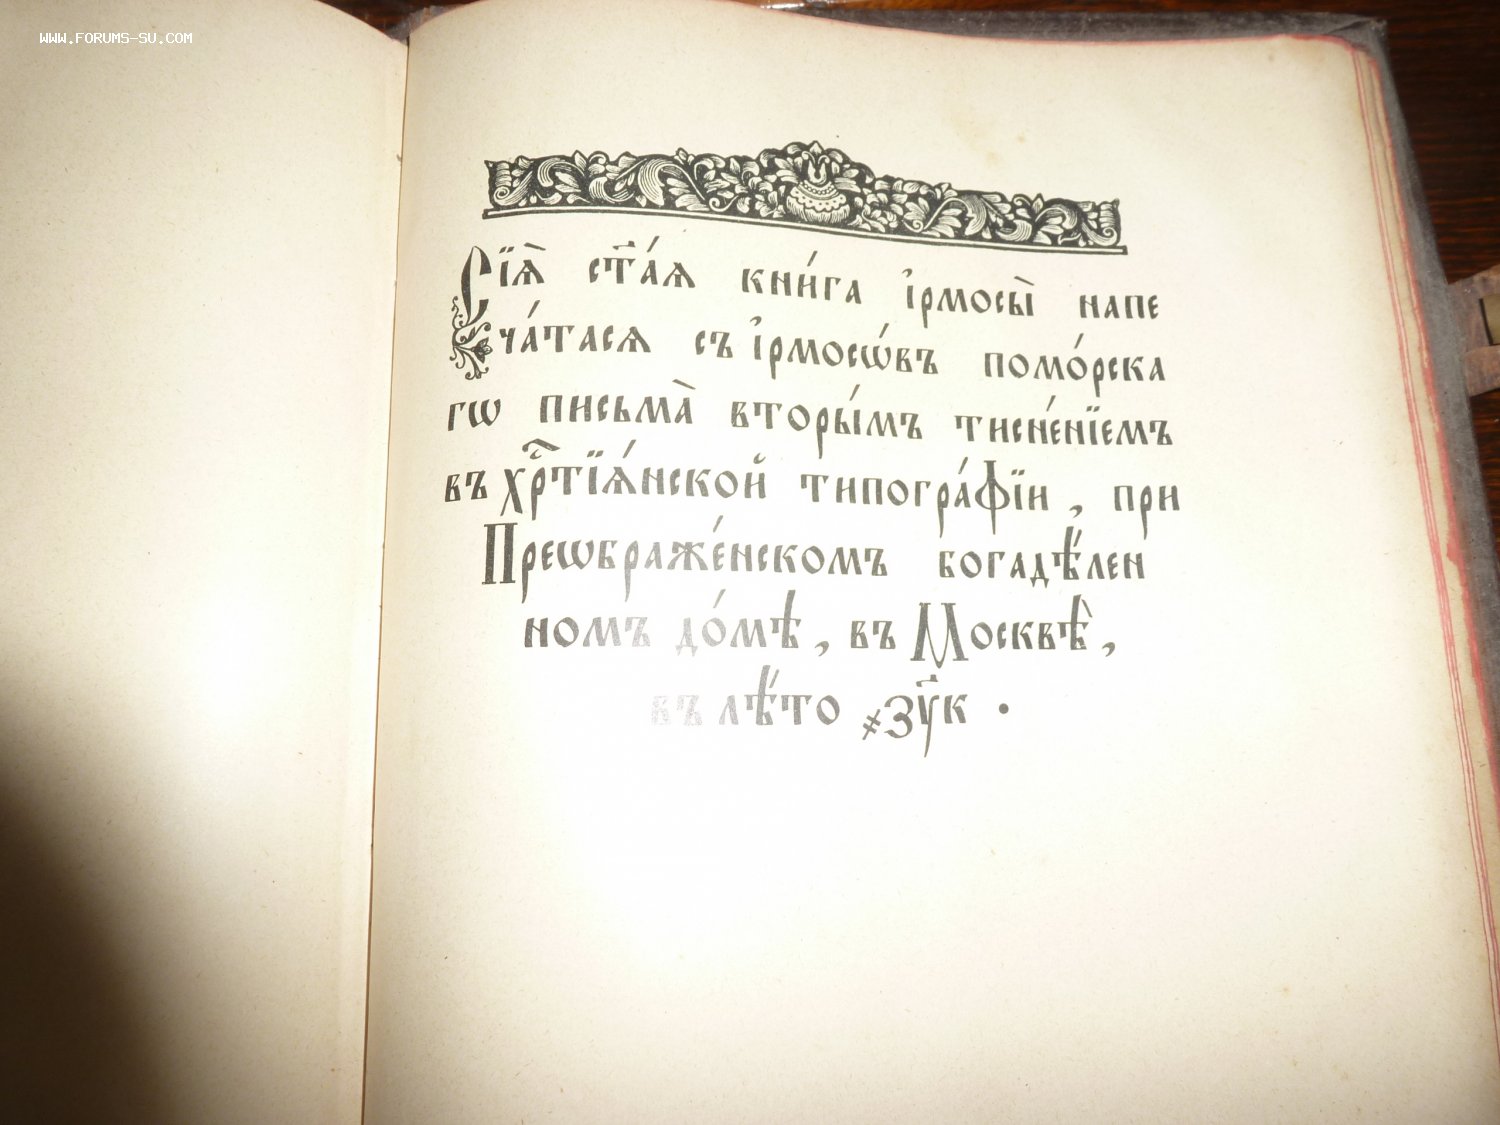 WWW.FORUMS-SU.COM
Сїѧ̀ ст҃а́ѧ кни́га і҆рмосы̀ напе
ча́тасѧ съ і҆рмосѡ́въ помо́рска
гѡ письма̀ вторы́мъ тисне́нїемъ
въ хрⷭ҇тїѧ́нской типогра́фїи, при
Преѡбраже́нскомъ богадѣ́лен
номъ до́мѣ, въ Москвѣ̀,
въ лѣ́то ҂зу҃к.